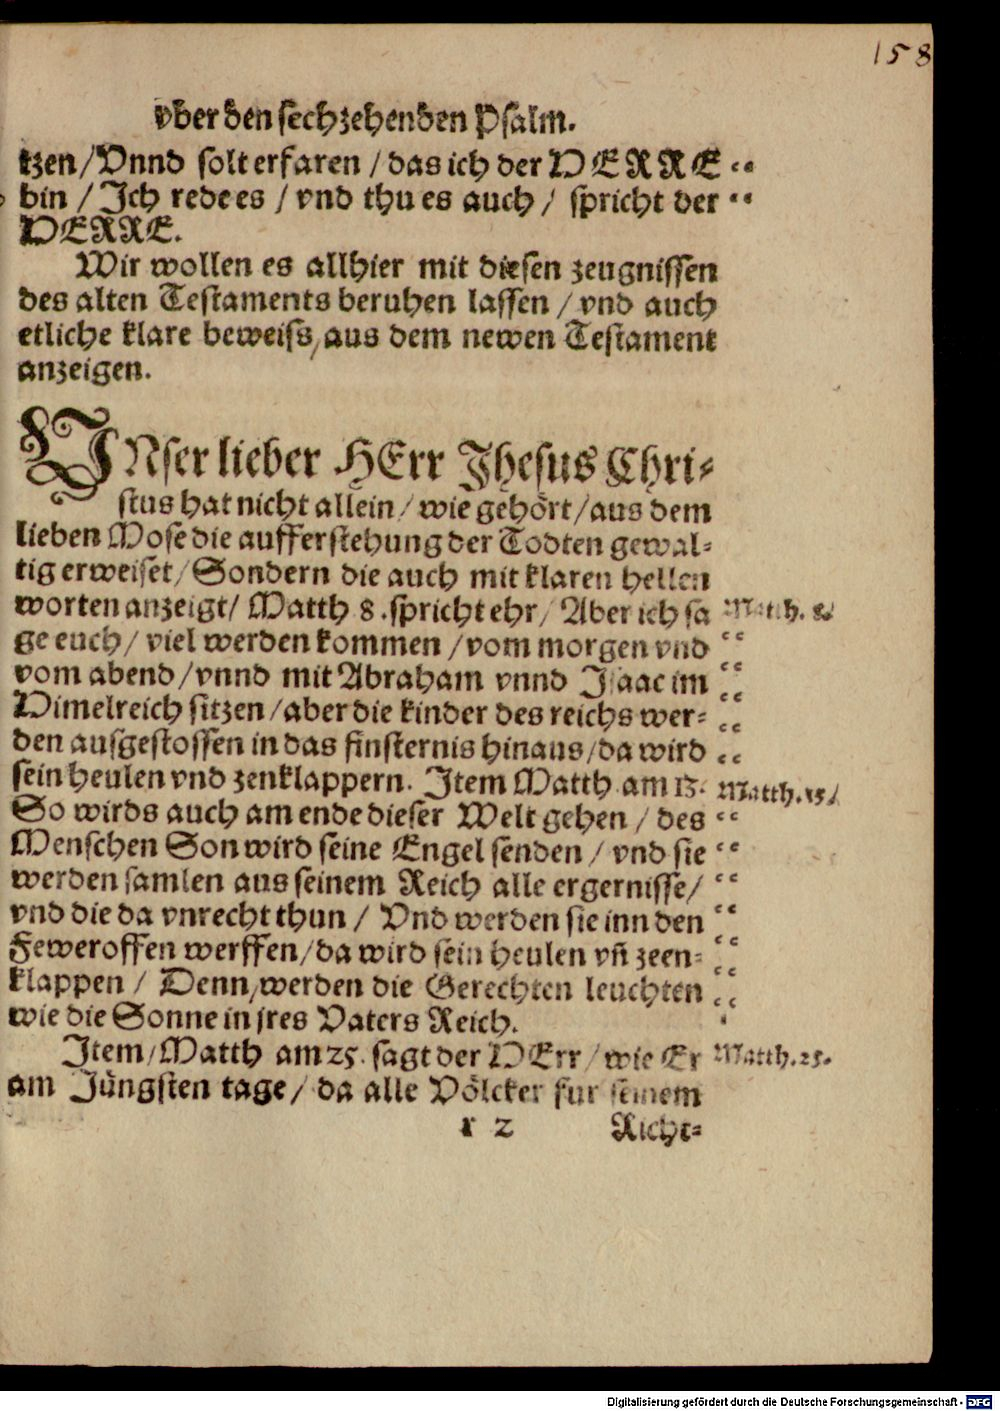 158
vber den sechzehenden Psalm.
tzen/Vnnd solt erfaren / das ich der HERRE
bin / Ich rede es / vnd thu es auch / spricht der
HERRE.
Wir wollen es allhier mit diesen zeugnissen
des alten Testaments beruhen lassen / vnd auch
etliche klare beweiss, aus dem newen Testament
anzeigen.
VNser lieber HErr Jhesus Chri-
stus hat nicht allein / wie gehört/aus dem
lieben Mose die aufferstehung der Todten gewal-
tig erweiset/Sondern die auch mit klaren hellen
worten anzeigt/ Matth 8.spricht ehr/ Aber ich sa Matth. 8.
ge euch/ viel werden kommen / vom morgen vnd
vom abend/vnnd mit Abraham vnnd Isaac im
Himelreich sitzen/aber die kinder des reichs wer-
den ausgestossen in das finsternis hinaus/da wird
sein heulen vnd zenklappern. Item Matth am 13. Matth. 13/
So wirds auch am ende dieser Welt gehen / des
Menschen Son wird seine Engel senden / vnd sie
werden samlen aus seinem Reich alle ergernisse/
vnd die da vnrecht thun / Vnd werden sie inn den
Feweroffen werffen/da wird sein heulen vñ zeen-
klappen / Denn, werden die Gerechten leuchten
wie die Sonne in jres Vaters Reich.
Item/Matth am 25. sagt der HErr/wie Er Matth. 25.
am Jüngsten tage/ da alle Völcker fur seinem
r 2 Richt-
Digitalisierung gefördert durch die Deutsche Forschungsgemeinschaft - DFG